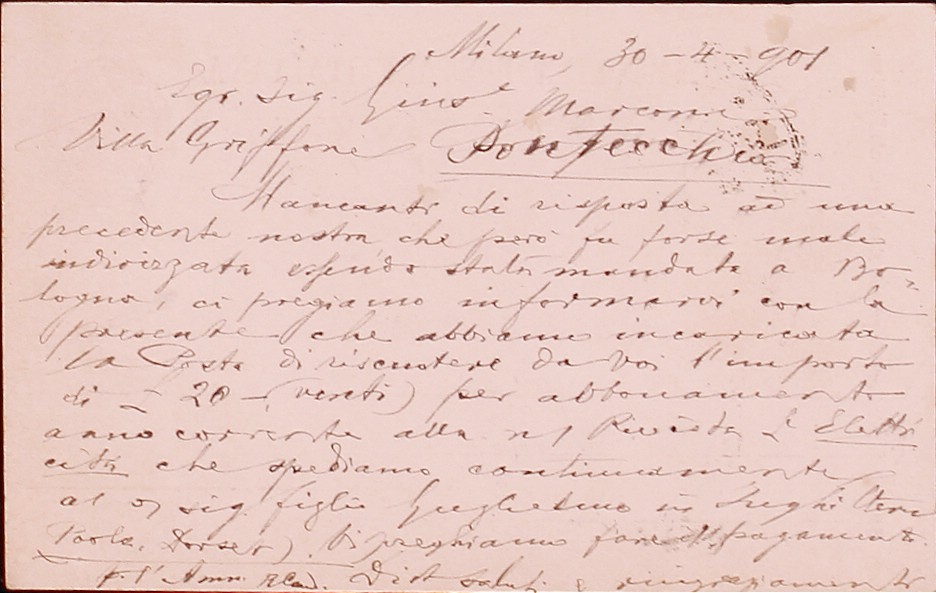 Milano, 30-4-901
Egr. Sig. Gius.e Marconi
Villa Griffone Pontecchio
Mancanti di risposta ad una
precedente nostra che però fu forse male
indirizzata essendo stata mandata a Bo-
logna, ci pregiamo informarvi con la
presente che abbiamo incaricata
la Posta di riscuotere da Voi l'importo
di L 20 - (venti) per abbonamento
anno corrente alla n/ Rivista L'Elettri
cità che spediamo continuamente
al v/ sig. figlio Guglielmo in Inghilterra
Poole, Dorset). Vi preghiamo fare il pagamento
p. l'Amm. saluti e ringraziamenti